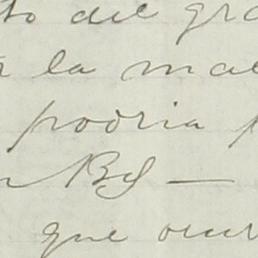 to del gra
la mal
podria
Bs —
que ocur